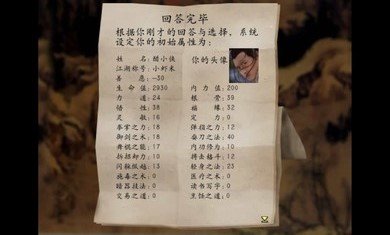 回答完毕
根据你刚才的回答与选择，系统
设定你的初始属性为：
姓名：醋小侠 你的头像
江湖称号：小虾米
善恶：-30
生命值：2930 内力值：200
力道：24 根骨：39
悟性：38 福缘：32
灵敏：16 定力：0
拳掌之力：18 弹指之力：12
御剑之术：18 耍刀之法：40
舞棍之能：17 内功修为：10
拆招卸力：10 搏击格斗：12
闪躲纵越：13 轻身之法：25
施毒之术：0 医疗之术：0
暗器技法：0 读书写字：0
交易之道：0 烹饪之道：0